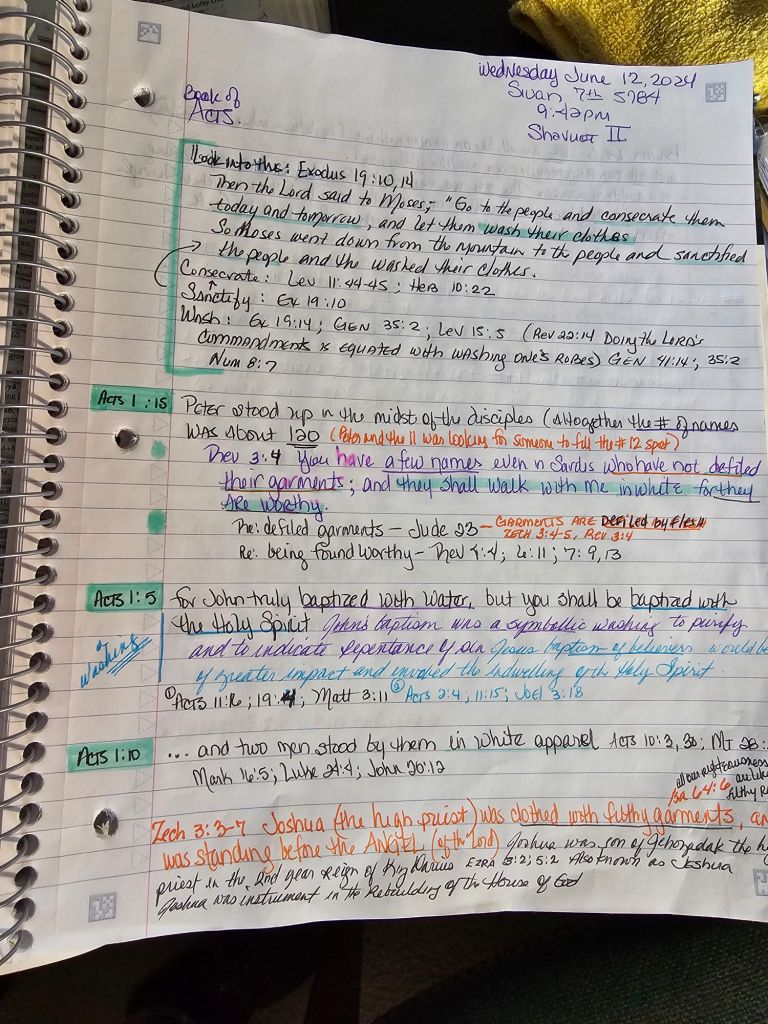 Wednesday June 12, 2024
Sivan 7th 5784
9:42pm
Shavuot II
Book of
ACTS.
Look into this: Exodus 19:10,14
Then the Lord said to Moses, "Go to the people and consecrate them
today and tomorrow, and let them wash their clothes
So Moses went down from the mountain to the people and sanctified
the people and the washed their clothes.
Consecrate: Lev 11:44-45; Heb 10:22
Sanctify: Ex 19:10
Wash: Ex 19:14; GEN 35:2; Lev 15:5 (Rev 22:14 Doing the LORD's
Commandments is equated with washing one's Robes) GEN 41:14; 35:2
Num 8:7
Acts 1:15
Peter stood up in the midst of the disciples (Altogether the # of names
was about 120 (Peter and the 11 was looking for someone to fill the #12 spot)
Rev 3:4 You have a few names even n Sardis who have not defiled
their garments; and they shall walk with me in white for they
are worthy.
Re: defiled garments - Jude 23 - GARMENTS ARE Defiled by flesh
ZECH 3:4-5, Rev 3:4
Re: being found worthy - Rev 4:4; 6:11; 7:9,13
Acts 1:5
for John truly baptized with water, but you shall be baptized with
the Holy Spirit John's baptism was a symbolic washing to purify
and to indicate repentance of sin Jesus baptism of believers would be
of greater impact and invoked the indwelling of the Holy Spirit.
a washing
① Acts 11:16; 19:4; Matt 3:11 ② Acts 2:4; 11:15; Joel 3:18
Acts 1:10
... and two men stood by them in white apparel Acts 10:3, 30; MT 28:
Mark 16:5; Luke 24:4; John 20:12
all our righteousness
are like
filthy
Isa 64:6
Zech 3:3-7 Joshua (the high priest) was clothed with filthy garments, an
was standing before the ANGEL (of the Lord) Joshua was son of Jehozadak the h
priest in the 2nd year reign of King Darius EZRA 3:2; 5:2 Also known as Jeshua
Joshua was instrument in the Rebuilding of the House of God